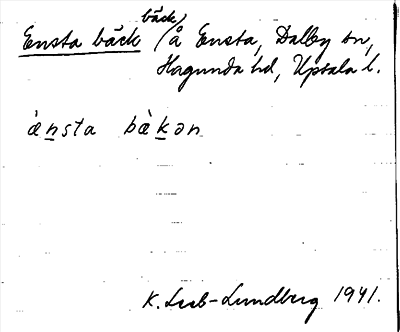 Ensta bäck (bäck, å Ensta, Dalby sn,
Hagunda hd, Upsala l.
ànsta bàkən
K. Leib-Lundberg 1941.